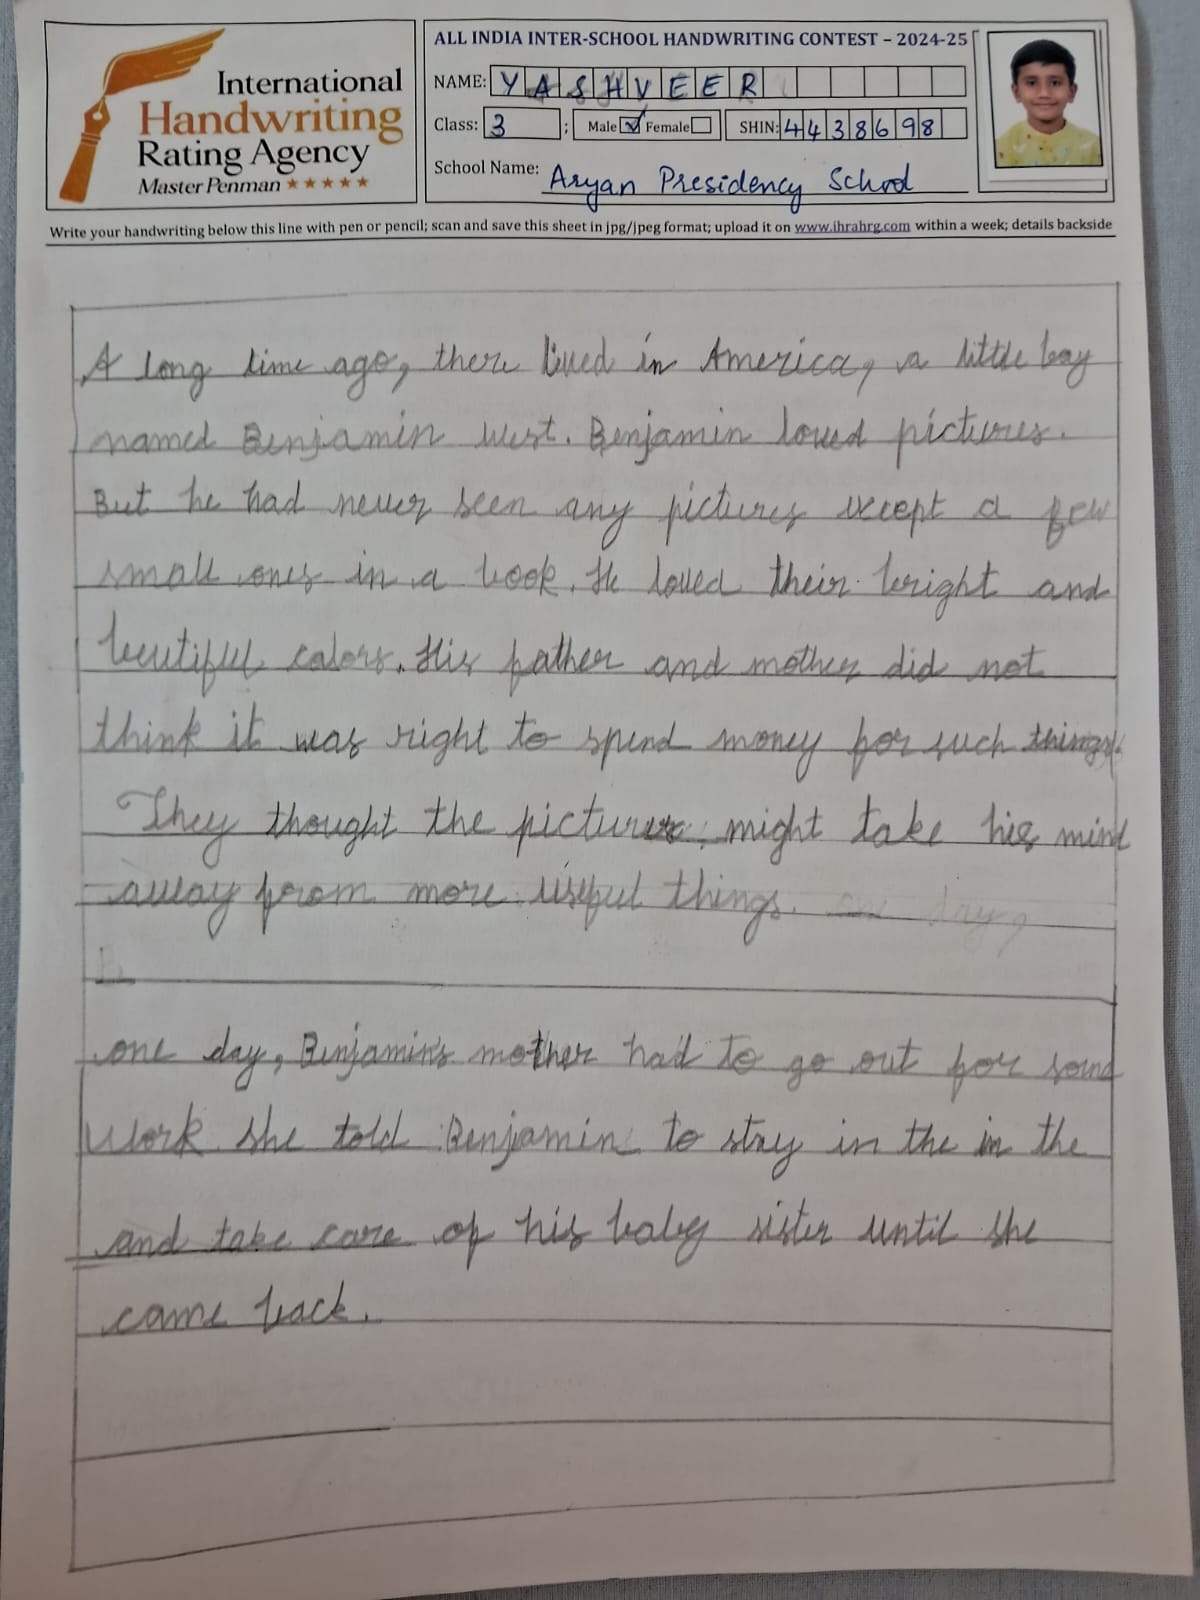 International
Handwriting
Rating Agency
Master Penman ★★★★★
ALL INDIA INTER-SCHOOL HANDWRITING CONTEST – 2024-25
NAME: YASHVEER
Class: 3 ; Male ☑ Female ☐ SHIN: 4438698
School Name: Aryan Presidency School
Write your handwriting below this line with pen or pencil; scan and save this sheet in jpg/jpeg format; upload it on www.ihrahrg.com within a week; details backside
A long time ago, there lived in America, a little boy
named Benjamin west. Benjamin loved pictures.
But he had never seen any pictures except a few
small ones in a book. He loved their bright and
beutiful colors. His father and mother did not
think it was right to spend money for such things.
They thought the pictures might take his mind
away from more useful things. one day,
B
one day, Benjamin's mother had to go out for some
work she told Benjamin to stay in the in the
and take care of his baby sister until she
came back.